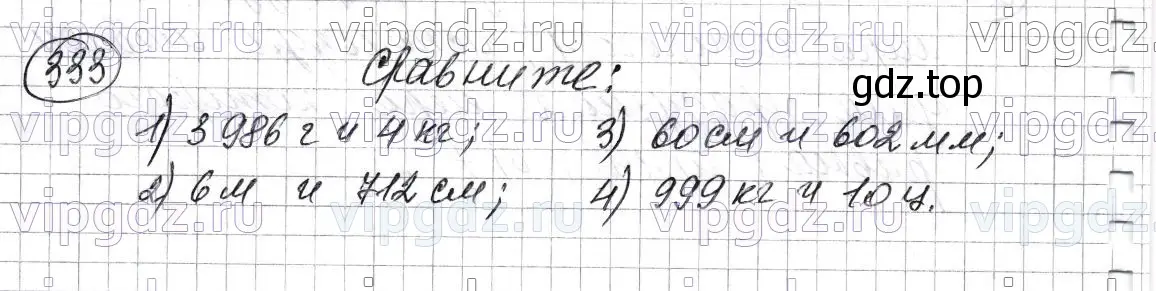 vipgdz.ru vipgdz.ru vipgdz.ru vipgdz.ru vipgdz.ru
333 Сравните:
gdz.top
vipgdz.ru vipgdz.ru vipgdz.ru vipgdz.ru vipgdz.ru
1) 3 986 г и 4 кг; 3) 60 см и 602 мм;
2) 6 м и 712 см; 4) 999 кг и 10 ц.
vipgdz.ru vipgdz.ru vipgdz.ru vipgdz.ru vipgdz.ru